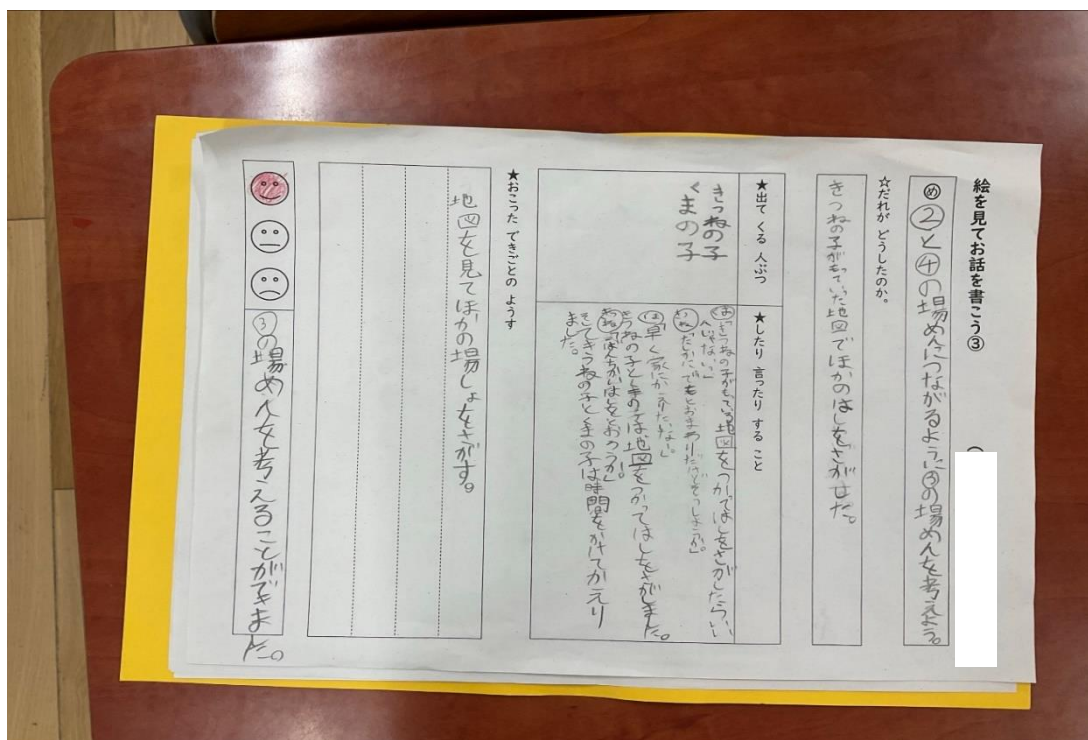 絵を見てお話を書こう③
め ②と④の場めんにつながるように③の場めんを考えよう。
☆だれが どうしたのか。
きつねの子がもっていた地図でほかのはしをさがせた。
★出て くる 人ぶつ
きつねの子
くまの子
★したり 言ったり する こと
「きつねの子がもっている地図をつかてはしをさがしたらいい
んじゃない。」
「早く家にかえりたいな。」
きつねの子とくまの子は、地図をつかってはしをさがしました。
きてきつねの子とくまの子は時間をかけてかえり
ました。
★おこった できごとの ようす
地図を見てほかの場しょをさがす。
③の場めんを考えることができました。